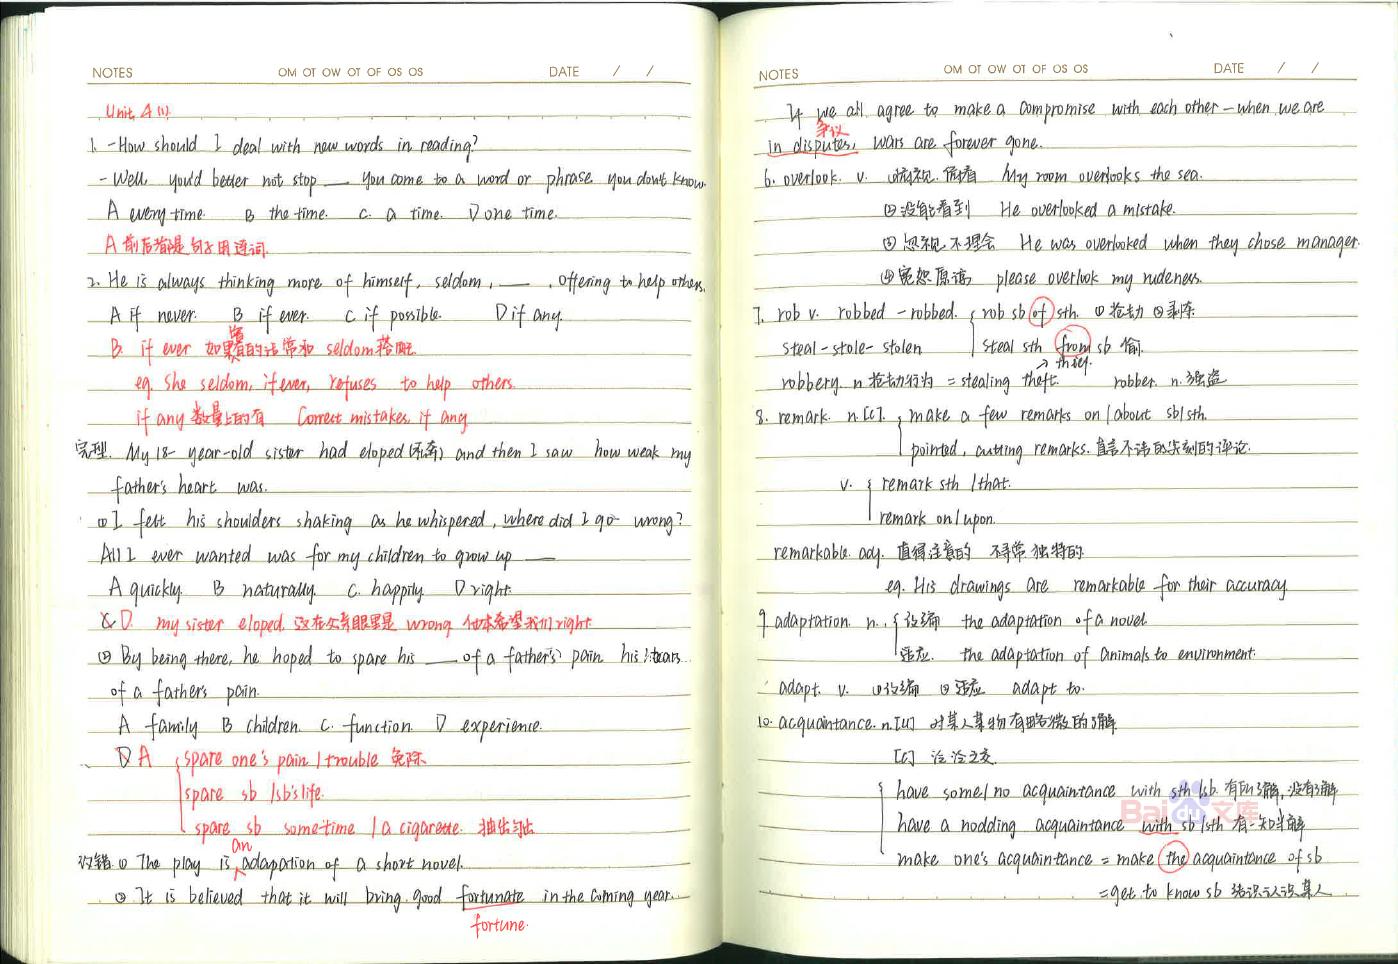 NOTES OM OT OW OT OF OS OS DATE / /
Unit 4 (1)
1. -How should I deal with new words in reading?
-Well, you'd better not stop ___ you come to a word or phrase you don't know.
A every time. B the time. C. a time. D one time.
A 前后都是句子用连词.
2. He is always thinking more of himself, seldom, ___, offering to help others.
A if never. B if ever. C if possible. D if any.
B. if ever 如果有的话 常和 seldom 搭配
eg. She seldom, if ever, refuses to help others.
if any 数量上的有 Correct mistakes, if any
完型. My 18-year-old sister had eloped (私奔) and then I saw how weak my
father's heart was.
① I felt his shoulders shaking as he whispered, where did I go wrong?
All I ever wanted was for my children to grow up ___
A quickly B naturally C. happily D right.
D. my sister eloped. 这在父亲眼里是 wrong 他本希望我们 right
② By being there, he hoped to spare his ___ of a father's pain his tears
of a father's pain.
A family B children C. function. D experience.
D A spare one's pain / trouble 免除
spare sb / sb's life.
spare sb some time / a cigarette. 抽出 匀出
改错 ① The play is an adapation of a short novel.
② It is believed that it will bring good fortunate in the coming year.
fortune.
NOTES OM OT OW OT OF OS OS DATE / /
If we all agree to make a compromise with each other - when we are
争议
in disputes, wars are forever gone.
6. overlook. v. ①俯视. 俯看 My room overlooks the sea.
②没能看到 He overlooked a mistake.
③忽视 不理会 He was overlooked when they chose manager.
④宽恕 原谅 please overlook my rudeness.
7. rob v. robbed - robbed. rob sb of sth. ①抢劫 ②剥夺
steal - stole - stolen steal sth from sb 偷.
→ thief.
robbery. n 抢劫行为 = stealing theft. robber. n. 强盗
8. remark. n. [c]. make a few remarks on / about sb / sth.
pointed, cutting remarks. 直言不讳的 尖刻的评论.
v. remark sth / that.
remark on / upon.
remarkable. adj. 值得注意的 不寻常 独特的
eg. His drawings are remarkable for their accuracy
9 adaptation. n. 改编 the adaptation of a novel
适应. the adaptation of animals to environment.
adapt. v. ①改编 ②适应 adapt to.
10. acquaintance. n. [U] 对某人某物有略微的了解.
[C] 泛泛之交.
have some / no acquaintance with sth / sb. 有所了解, 没有了解
have a nodding acquaintance with sb / sth 有一知半解
make one's acquaintance = make the acquaintance of sb
= get to know sb 结识 认识某人
Baidu文库